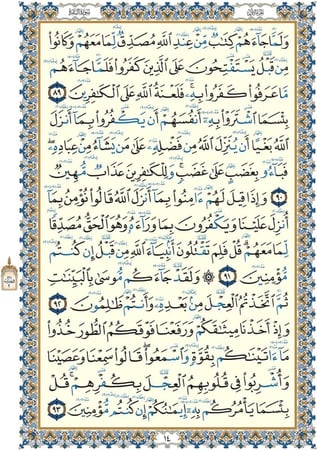 وَلَمَّا جَآءَهُمْ كِتَٰبٌ مِّنْ عِندِ ٱللَّهِ مُصَدِّقٌ لِّمَا مَعَهُمْ وَكَانُوا۟
مِن قَبْلُ يَسْتَفْتِحُونَ عَلَى ٱلَّذِينَ كَفَرُوا۟ فَلَمَّا جَآءَهُم
مَّا عَرَفُوا۟ كَفَرُوا۟ بِهِۦ ۚ فَلَعْنَةُ ٱللَّهِ عَلَى ٱلْكَٰفِرِينَ ٨٩
بِئْسَمَا ٱشْتَرَوْا۟ بِهِۦٓ أَنفُسَهُمْ أَن يَكْفُرُوا۟ بِمَآ أَنزَلَ
ٱللَّهُ بَغْيًا أَن يُنَزِّلَ ٱللَّهُ مِن فَضْلِهِۦ عَلَىٰ مَن يَشَآءُ مِنْ عِبَادِهِۦ ۖ
فَبَآءُو بِغَضَبٍ عَلَىٰ غَضَبٍ ۚ وَلِلْكَٰفِرِينَ عَذَابٌ مُّهِينٌ
٩٠ وَإِذَا قِيلَ لَهُمْ ءَامِنُوا۟ بِمَآ أَنزَلَ ٱللَّهُ قَالُوا۟ نُؤْمِنُ بِمَآ
أُنزِلَ عَلَيْنَا وَيَكْفُرُونَ بِمَا وَرَآءَهُۥ وَهُوَ ٱلْحَقُّ مُصَدِّقًا
لِّمَا مَعَهُمْ ۗ قُلْ فَلِمَ تَقْتُلُونَ أَنۢبِيَآءَ ٱللَّهِ مِن قَبْلُ إِن كُنتُم
مُّؤْمِنِينَ ٩١ ۞ وَلَقَدْ جَآءَكُم مُّوسَىٰ بِٱلْبَيِّنَٰتِ
ثُمَّ ٱتَّخَذْتُمُ ٱلْعِجْلَ مِنۢ بَعْدِهِۦ وَأَنتُمْ ظَٰلِمُونَ ٩٢
وَإِذْ أَخَذْنَا مِيثَٰقَكُمْ وَرَفَعْنَا فَوْقَكُمُ ٱلطُّورَ خُذُوا۟
مَآ ءَاتَيْنَٰكُم بِقُوَّةٍ وَٱسْمَعُوا۟ ۖ قَالُوا۟ سَمِعْنَا وَعَصَيْنَا
وَأُشْرِبُوا۟ فِى قُلُوبِهِمُ ٱلْعِجْلَ بِكُفْرِهِمْ ۚ قُلْ
بِئْسَمَا يَأْمُرُكُم بِهِۦٓ إِيمَٰنُكُمْ إِن كُنتُم مُّؤْمِنِينَ ٩٣
١٤